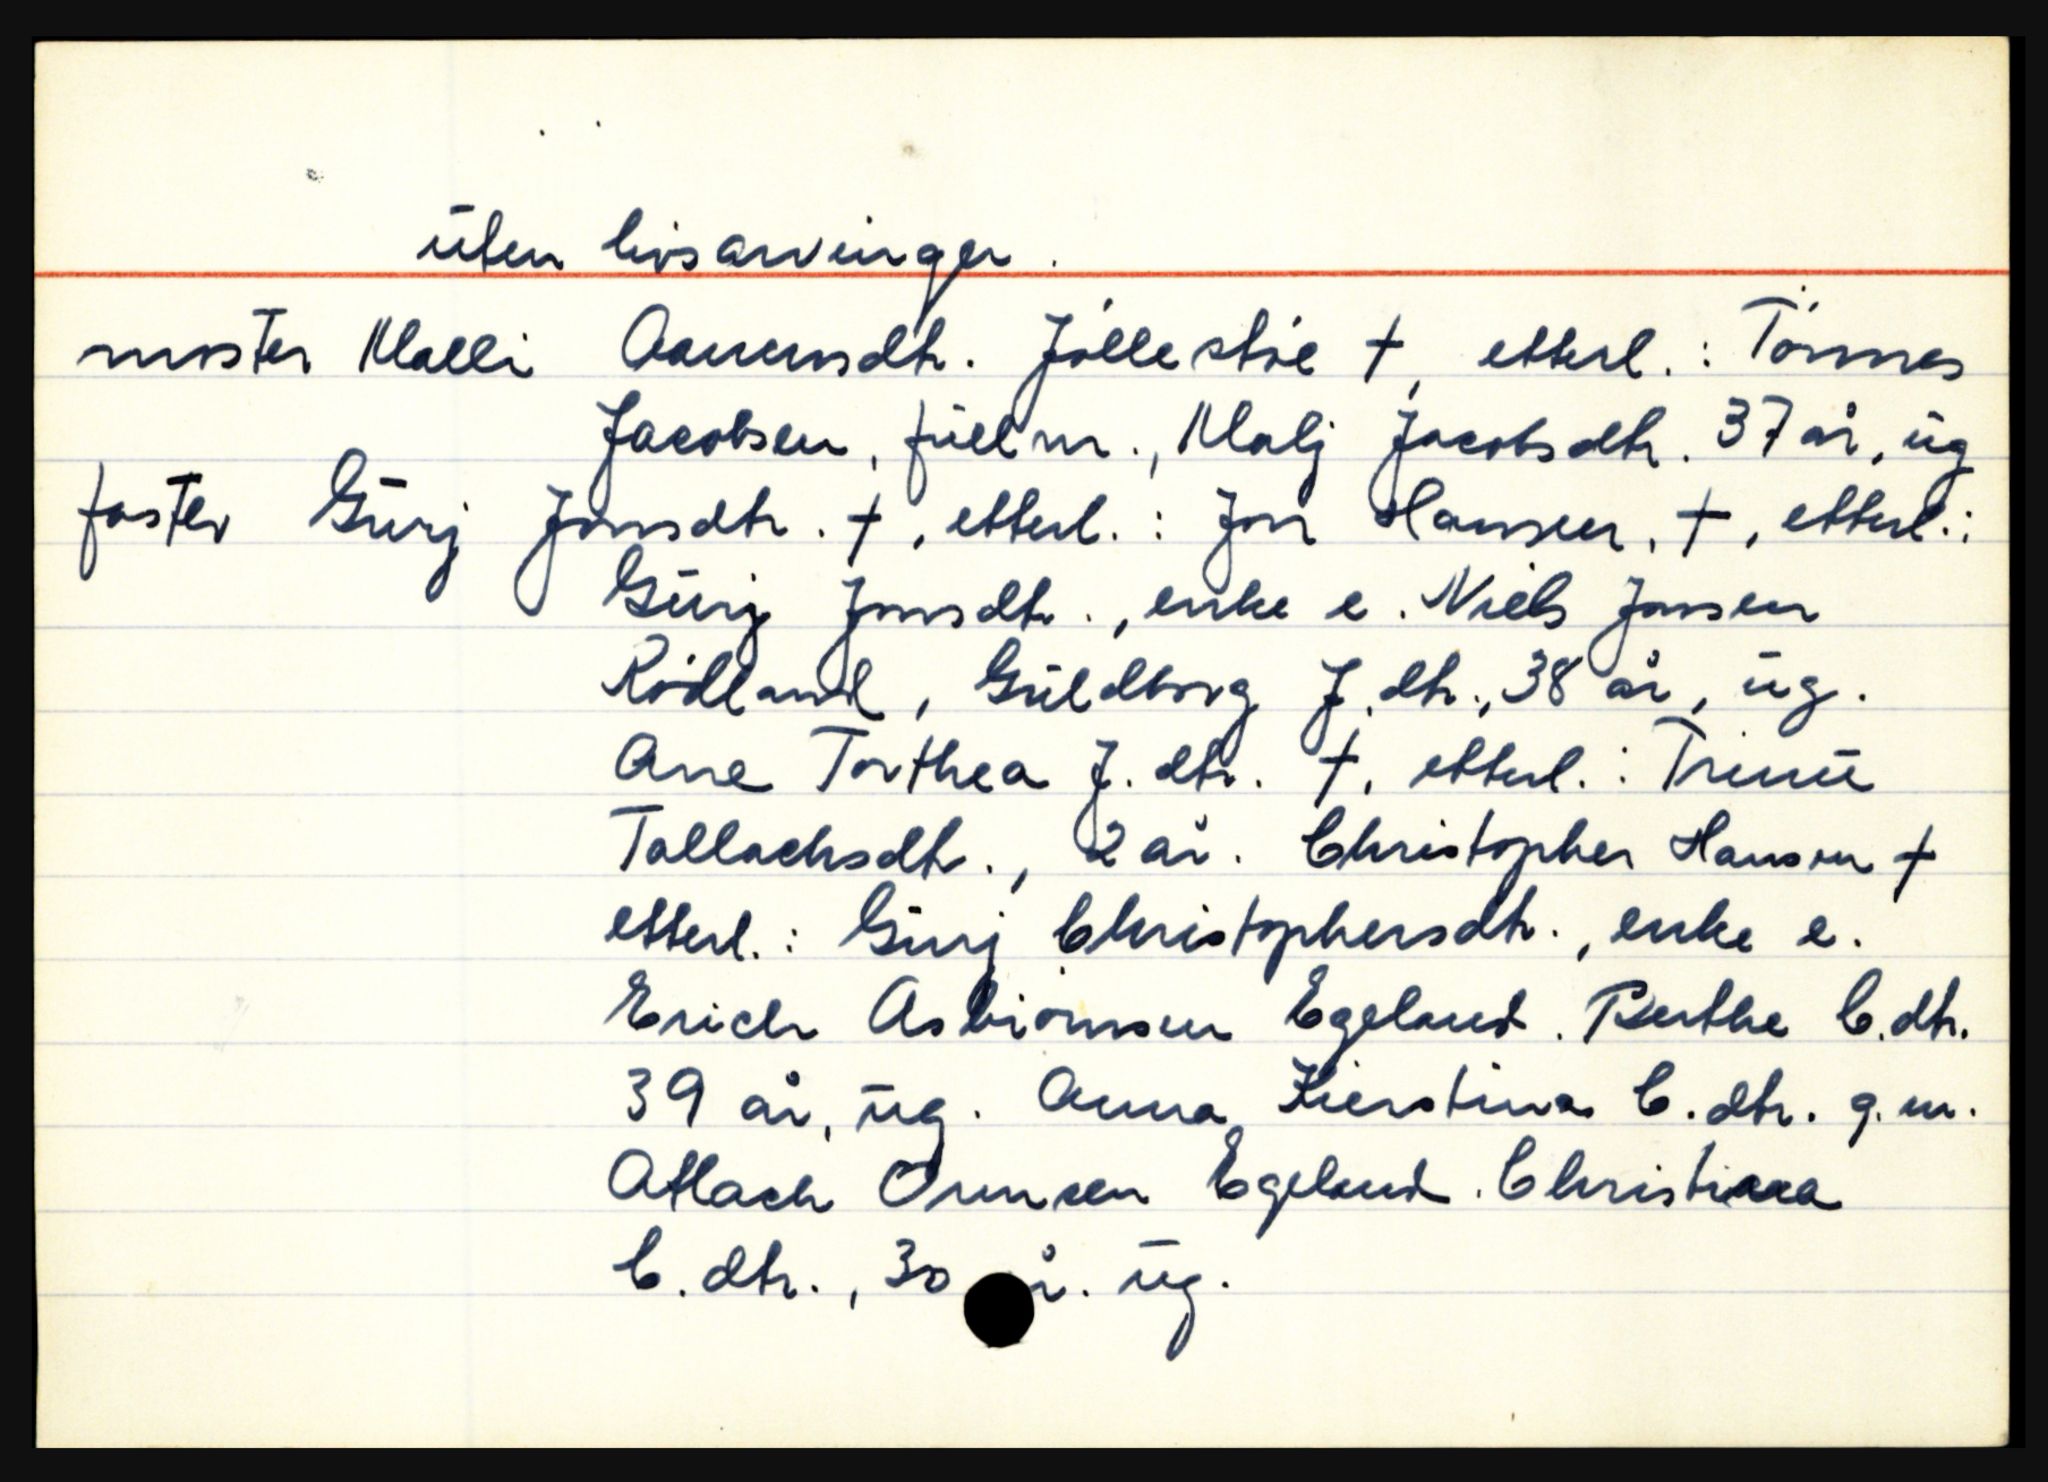 uten livsarvinger.
moster Malli Aanensdtr. Jøllestøe †, etterl.: Tönnes
Jacobsen, fuelm., Malj Jacobsdtr. 37 år, ug
faster Gurj Jonsdtr. †, etterl.: Jon Hansen, †, etterl.:
Gurj Jonsdtr., enke e. Niels Jonsen
Rødland, Guldborg J.dtr., 38 år, ug.
Ane Torthea J.dtr. †, etterl.: Trine
Tollachsdtr., 2 år. Christopher Hansen †
etterl.: Gurj Christophersdtr., enke e.
Erich Asbiørnsen Egeland. Berthe C.dtr.
39 år, ug. Anna Kierstina C.dtr. g.m.
Atlach Omnsen Egeland. Christiana
C.dtr., 30 år. ug.